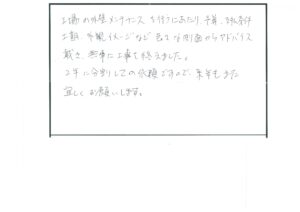 工場の外壁メンテナンスを行うにあたり、予算、条件
工期、外観イメージなど色々な側面からアドバイス
戴き、無事に工事を終えました。
2年に分割しての依頼ですので、来年もまた
宜しくお願いします。